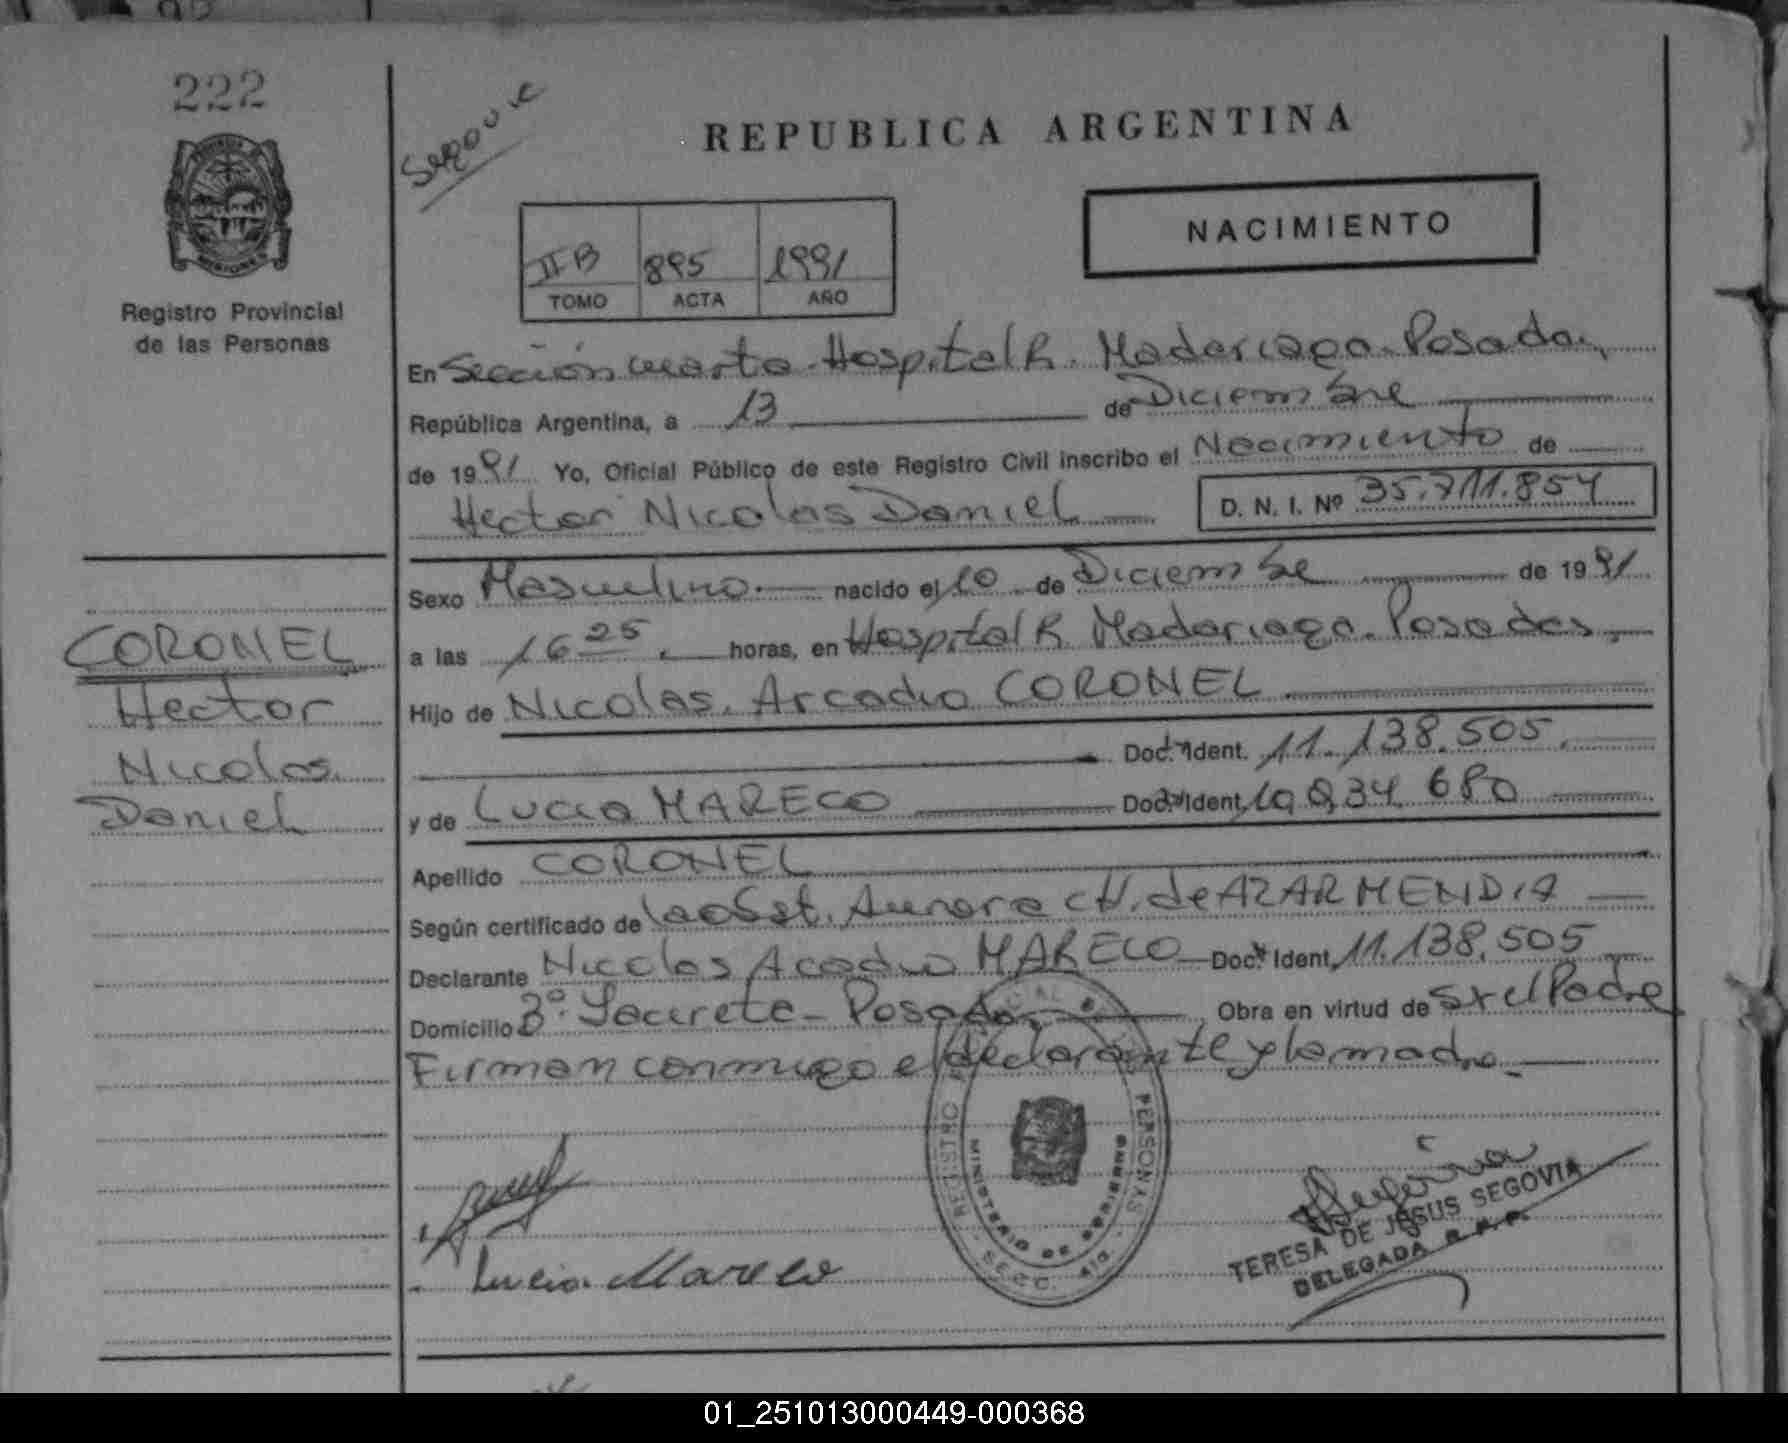 222
Segovia
REPUBLICA ARGENTINA
NACIMIENTO
II B 895 1991
TOMO ACTA AÑO
Registro Provincial
de las Personas
MISIONES
En Sección cuarta Hospital R. Madariaga Posadas,
República Argentina, a 13 de Diciembre
de 1991 Yo, Oficial Público de este Registro Civil inscribo el Nacimiento de
Hector Nicolas Daniel D. N. I. Nº 35.711.854
Sexo Masculino. nacido el 10 de Diciembre de 1991
a las 16 25. horas, en Hospital R Madariaga. Posadas,
Hijo de Nicolas. Arcadio CORONEL
Doc. Ident. 11.138.505.
y de Lucia MARECO Doc. Ident. 10.834.680
Apellido CORONEL
Según certificado de la obst. Aurora CH. de AZARMENDIA
Declarante Nicolas Acadio MARECO Doc. Ident. 11.138.505
Domicilio Bº. Yacerete - Posadas. Obra en virtud de Sr el Padre
Firman conmigo el declarante y la madre.
CORONEL
Hector
Nicolas.
Daniel
REGISTRO PERSONAS
MINISTERIO DE GOBIERNO
SECC. 4ta.
Lucia Mareco
TERESA DE JESUS SEGOVIA
DELEGADA R. P. P.
01_251013000449-000368